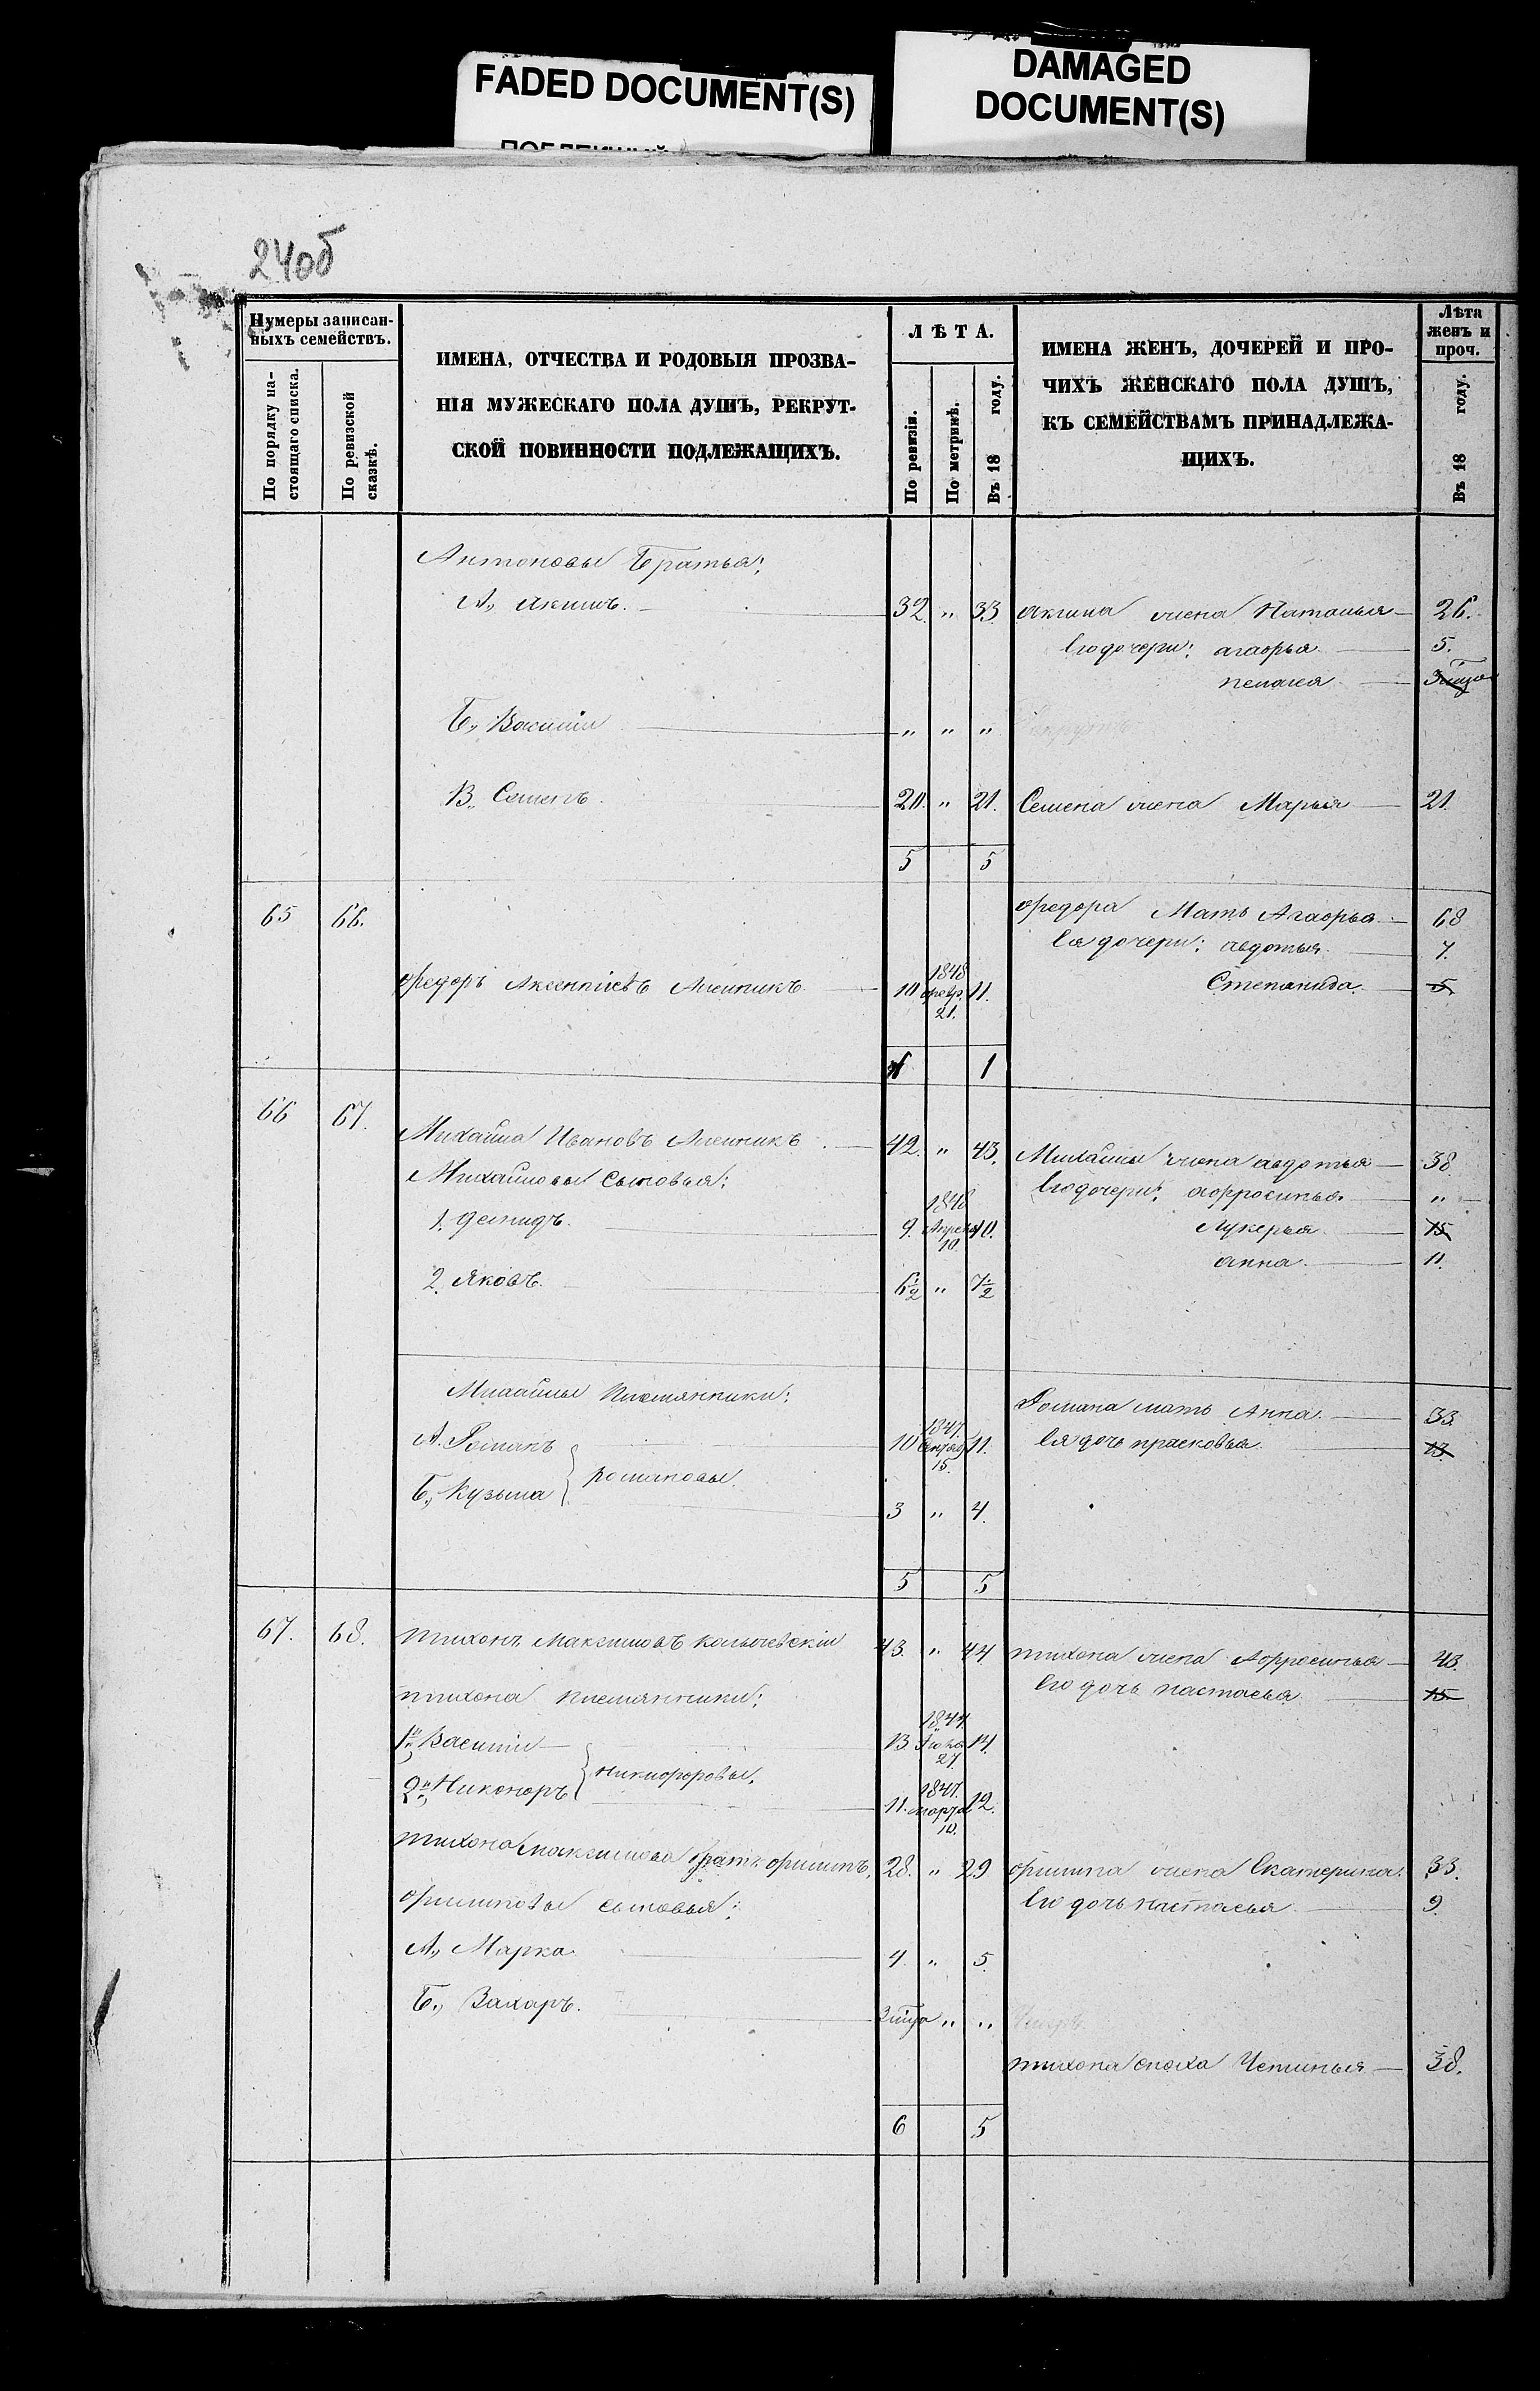 FADED DOCUMENT(S)
DAMAGED
DOCUMENT(S)
240б
Нумеры записан-
ныхъ семействъ.
По порядку на-
стоящаго списка.
По ревизской
сказкѣ.
ИМЕНА, ОТЧЕСТВА И РОДОВЫЯ ПРОЗВА-
НІЯ МУЖЕСКАГО ПОЛА ДУШЪ, РЕКРУТ-
СКОЙ ПОВИННОСТИ ПОДЛЕЖАЩИХЪ.
ЛѢТА.
По ревизіи.
По метрикѣ.
Въ 18 году.
ИМЕНА ЖЕНЪ, ДОЧЕРЕЙ И ПРО-
ЧИХЪ ЖЕНСКАГО ПОЛА ДУШЪ,
КЪ СЕМЕЙСТВАМЪ ПРИНАДЛЕЖА-
ЩИХЪ.
Лѣта
женъ и
проч.
Въ 18 году.
Антоновы Братья:
А., Акимъ. 32. " 33. Акима жена Наталья 26.
Его дочери: Агафья 5.
Пелагея
Б., Василій " " "
В., Семенъ. 20. " 21. Семена жена Марья 21.
5 5
65 66. Федора Мать Агафья 68
Ея дочери: Авдотья 7.
Федоръ Аксентіевъ Алейникъ 10 1848 февр. 21. 11. Степанида. 5.
1 1
66 67. Михайла Ивановъ Алейникъ 42. " 43. Михайлы жена Авдотья 38
Михайловы Сыновья: Его дочери: Афросинья "
1. Демидъ. 9. 1848 Апреля 10. 10. Лукерья 15
Анна 11.
2. Яковъ. 6½ " 7½
Михайлы Племянники: Романа мать Анна 33.
А. Романъ 10 1847. 15. 11. Ея дочь Прасковья. 13.
Романовы.
Б., Кузьма 3 " 4.
5 5
67. 68. Тихонъ Максимовъ 43. " 44 Тихона жена Афросинья 43.
Тихона Племянники: Его дочь Настасья 15
1й, Василій 13. 1844. 27. 14.
Никифоровы.
2й, Никоноръ 11. 1847. марта 10. 12.
Тихона Максимова братъ Филипъ, 28. " 29 Филипа жена Екатерина. 33.
Филиповы сыновья: Его дочь Настасья 9.
А., Марко 4. " 5.
Б., Захаръ. " "
Тихона сноха 38.
6 5